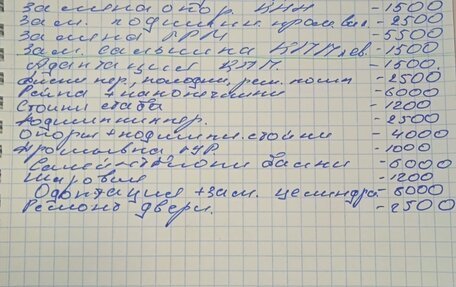 Замена опор. КПП -1500
Зам. подшипн. пром вал. -2500
Замена ГРМ -5500
Зам. сальника КПП лев. -1500
Адаптация КПП. -1500.
Диски пер, колодки, рем. комп -2500
Рейка + наконечники -6000
Стойки стаба -1200
Подшипник пер. -2500
Опоры + подшипн. стойки - 4000
Промывка ГУР -1000
Сайлентблоки балки -6000
Шаровая -1200
Адаптация + зам. цилиндра -6000
Ремонт двери. -2500